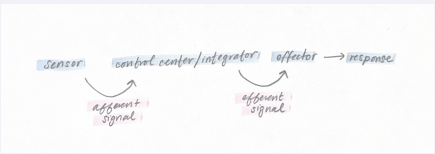 sensor control center/integrator effector → response
afferent signal
efferent signal